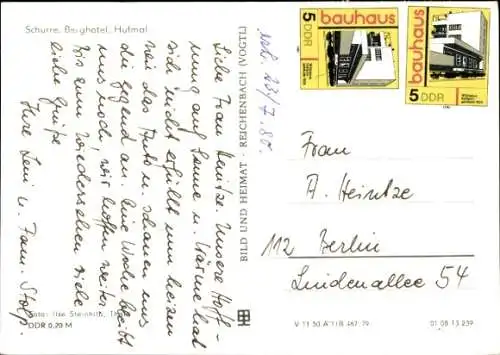 Schurre, Berghotel, Hufmal
Liebe Frau Heintze. Unsere Hoff-
nung auf Sonne u. Wärme hat
sich nicht erfüllt nun heizen
wir das Auto u. schauen uns
die Gegend an. Eine Woche bleibt
uns noch, wir hoffen weiter
Bis zum Wiedersehen viele
liebe Grüße
Ihre Leni u. Fam. Stolp.
Foto: Ilse Steinhoff,
DDR 0,20 M
BILD UND HEIMAT REICHENBACH (VOGTL)
23/7. 80.
5 DDR
bauhaus
5 DDR
bauhaus
Frau
A. Heintze
112 Berlin
Lindenallee 54
V 11 50 A 1/B 467/79
01 08 13 239